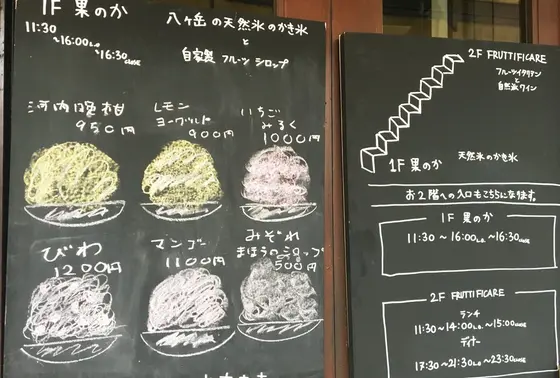 1F 果のか
11:30
～16:00L.O
～16:30CLOSE
八ヶ岳の天然氷のかき氷
と
自家製フルーツシロップ
河内晩柑
950円
レモン
ヨーグルト
900円
いちご
みるく
1000円
びわ
1200円
マンゴー
1100円
みぞれ
まほうのシロップ
500円
2F FRUTTIFICARE
フルーツイタリアン
と
自然派ワイン
1F 果のか 天然氷のかき氷
お2階への入口もこちらになります。
1F 果のか
11:30～16:00L.O～16:30CLOSE
2F FRUTTIFICARE
ランチ
11:30～14:00L.O～15:00CLOSE
ディナー
17:30～21:30L.O～23:30CLOSE